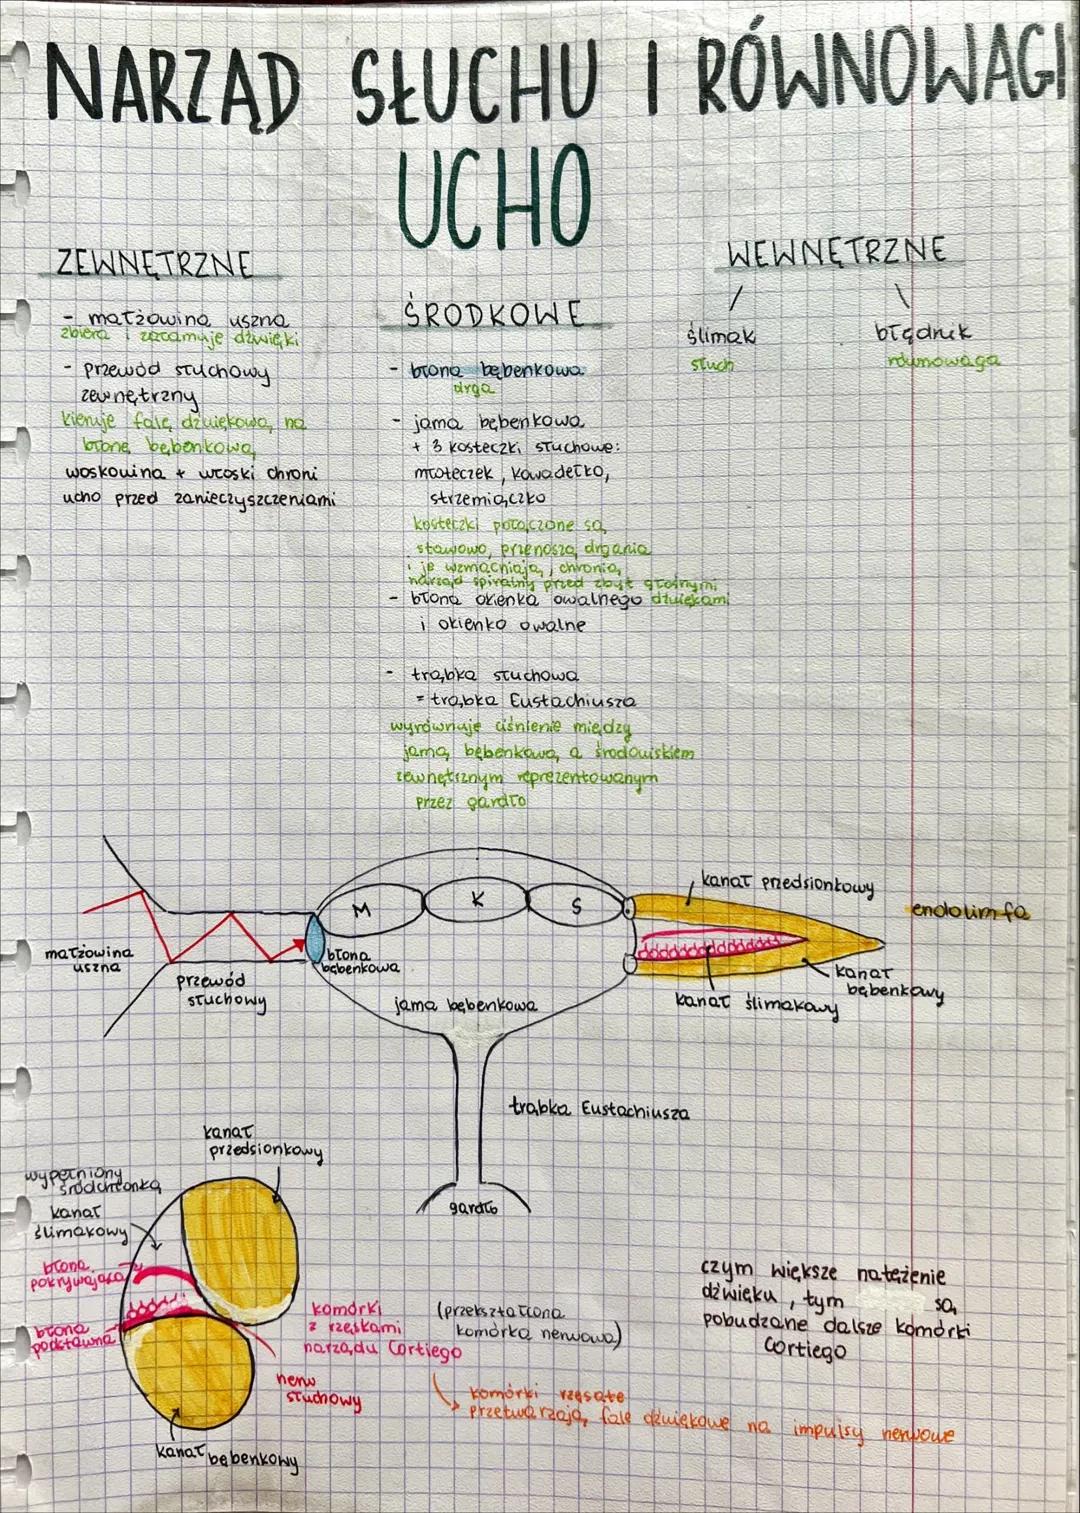 NARZĄD SŁUCHU I RÓWNOWAGI
UCHO
ZEWNĘTRZNE
- małżowina uszna
zbiera i załamuje dźwięki
- przewód słuchowy
zewnętrzny
kieruje falę dźwiękową na
błonę bębenkową
woskowina + włoski chroni
ucho przed zanieczyszczeniami
ŚRODKOWE
- błona bębenkowa
drga
- jama bębenkowa
+ 3 kosteczki słuchowe:
młoteczek, kowadełko,
strzemiączko
kosteczki połączone są
stawowo, przenoszą drgania
i je wzmacniają, chronią
narząd spiralny przed zbyt głośnymi
dźwiękami
- błona okienka owalnego
i okienko owalne
- trąbka słuchowa
= trąbka Eustachiusza
wyrównuje ciśnienie między
jamą bębenkową a środowiskiem
zewnętrznym reprezentowanym
przez gardło
WEWNĘTRZNE
ślimak
słuch
błędnik
równowaga
małżowina
uszna
przewód
słuchowy
błona
bębenkowa
M
K
S
jama bębenkowa
trąbka Eustachiusza
gardło
kanał przedsionkowy
endolimfa
kanał
bębenkowy
kanał ślimakowy
kanał
przedsionkowy
wypełniony
śródchłonką
kanał
ślimakowy
błona
pokrywająca
błona
podstawna
komórki
z rzęskami
narządu Cortiego
(przekształcona
komórka nerwowa)
nerw
słuchowy
kanał bębenkowy
komórki rzęsate
przetwarzają fale dźwiękowe na impulsy nerwowe
czym większe natężenie
dźwięku, tym są
pobudzane dalsze komórki
Cortiego